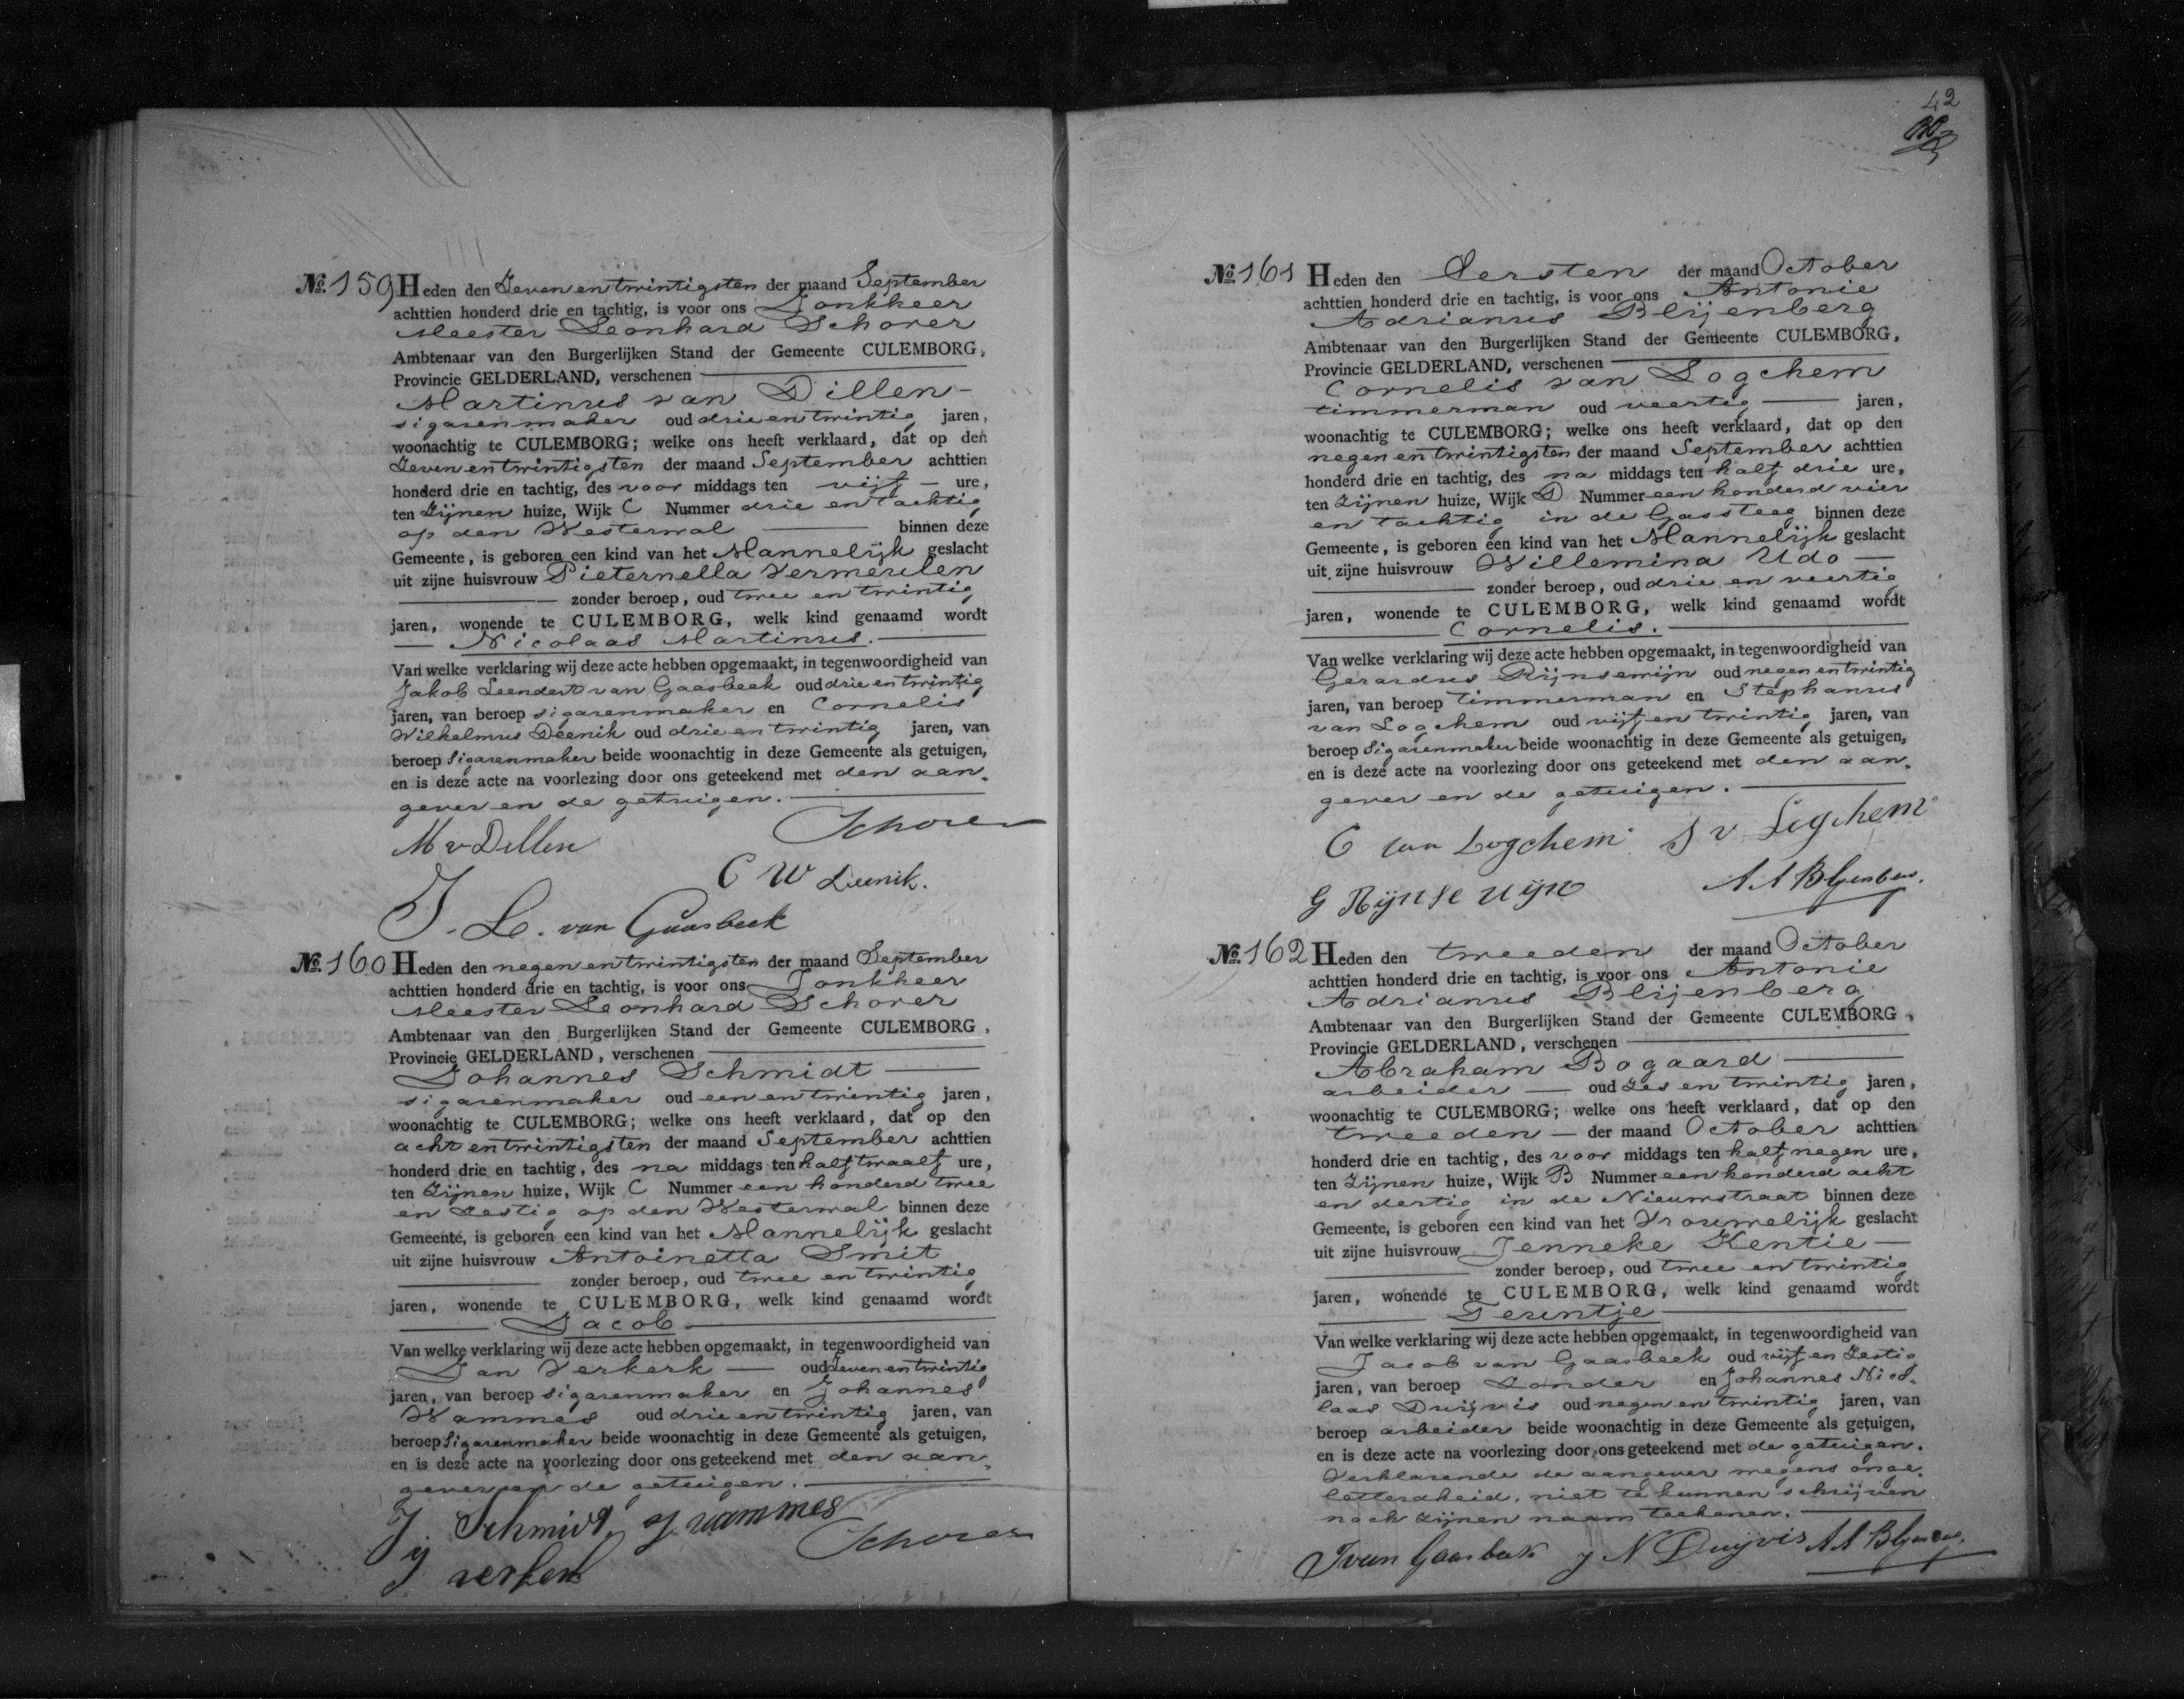 No. 159 Heden den Zeven en twintigsten der maand September
achttien honderd drie en tachtig, is voor ons Jonkheer
Meester Leonhard Schorer
Ambtenaar van den Burgerlijken Stand der Gemeente CULEMBORG,
Provincie GELDERLAND, verschenen
Martinus van Dillen
sigarenmaker oud drie en twintig jaren,
woonachtig te CULEMBORG; welke ons heeft verklaard, dat op den
Zeven en twintigsten der maand September achttien
honderd drie en tachtig, des voor middags ten vijf ure,
ten Zijnen huize, Wijk C Nummer drie en tachtig
op den Westerwal binnen deze
Gemeente, is geboren een kind van het Mannelijk geslacht
uit zijne huisvrouw Pieternella Vermeulen
zonder beroep, oud twee en twintig
jaren, wonende te CULEMBORG, welk kind genaamd wordt
Nicolaas Martinus.
Van welke verklaring wij deze acte hebben opgemaakt, in tegenwoordigheid van
Jakob Leendert van Gaasbeek oud drie en twintig
jaren, van beroep sigarenmaker en Cornelis
Wilhelmus Deenik oud drie en twintig jaren, van
beroep Sigarenmaker beide woonachtig in deze Gemeente als getuigen,
en is deze acte na voorlezing door ons geteekend met den aan-
gever en de getuigen.
M v Dillen Schorer
C W Deenik.
J. L. van Gaasbeek
No. 160 Heden den negen en twintigsten der maand September
achttien honderd drie en tachtig, is voor ons Jonkheer
Meester Leonhard Schorer
Ambtenaar van den Burgerlijken Stand der Gemeente CULEMBORG,
Provincie GELDERLAND, verschenen
Johannes Schmidt
sigarenmaker oud een en twintig jaren,
woonachtig te CULEMBORG; welke ons heeft verklaard, dat op den
acht en twintigsten der maand September achttien
honderd drie en tachtig, des na middags ten half twaalf ure,
ten Zijnen huize, Wijk C Nummer een honderd twee
en Zestig op den Westerwal binnen deze
Gemeente, is geboren een kind van het Mannelijk geslacht
uit zijne huisvrouw Antoinetta Smit
zonder beroep, oud twee en twintig
jaren, wonende te CULEMBORG, welk kind genaamd wordt
Jacob
Van welke verklaring wij deze acte hebben opgemaakt, in tegenwoordigheid van
Jan Verkerk oud Zeven en twintig
jaren, van beroep sigarenmaker en Johannes
Wammes oud drie en twintig jaren, van
beroep Sigarenmaker beide woonachtig in deze Gemeente als getuigen,
en is deze acte na voorlezing door ons geteekend met den aan-
gever en de getuigen.
J. Schmidt J wammes
Schorer
J verkerk
42
No. 161 Heden den Eersten der maand October
achttien honderd drie en tachtig, is voor ons Antonie
Adrianus Blijenberg
Ambtenaar van den Burgerlijken Stand der Gemeente CULEMBORG,
Provincie GELDERLAND, verschenen
Cornelis van Logchem
timmerman oud veertig jaren,
woonachtig te CULEMBORG; welke ons heeft verklaard, dat op den
negen en twintigsten der maand September achttien
honderd drie en tachtig, des na middags ten half drie ure,
ten Zijnen huize, Wijk D Nummer een honderd vier
en tachtig in de Gassteeg binnen deze
Gemeente, is geboren een kind van het Mannelijk geslacht
uit zijne huisvrouw Willemina Udo
zonder beroep, oud drie en veertig
jaren, wonende te CULEMBORG, welk kind genaamd wordt
Cornelis.
Van welke verklaring wij deze acte hebben opgemaakt, in tegenwoordigheid van
Gerardus Rijnsewijn oud negen en twintig
jaren, van beroep timmerman en Stephanus
van Logchem oud vijf en twintig jaren, van
beroep Sigarenmaker beide woonachtig in deze Gemeente als getuigen,
en is deze acte na voorlezing door ons geteekend met den aan-
gever en de getuigen.
C van Logchem S v Logchem
G Rijnsewijn A A Blijenberg.
No. 162 Heden den tweeden der maand October
achttien honderd drie en tachtig, is voor ons Antonie
Adrianus Blijenberg
Ambtenaar van den Burgerlijken Stand der Gemeente CULEMBORG,
Provincie GELDERLAND, verschenen
Abraham Bogaard
arbeider oud Zes en twintig jaren,
woonachtig te CULEMBORG; welke ons heeft verklaard, dat op den
tweeden der maand October achttien
honderd drie en tachtig, des voor middags ten half negen ure,
ten Zijnen huize, Wijk B Nummer een honderd acht
en dertig in de Nieuwstraat binnen deze
Gemeente, is geboren een kind van het Vrouwelijk geslacht
uit zijne huisvrouw Jenneke Kentie
zonder beroep, oud twee en twintig
jaren, wonende te CULEMBORG, welk kind genaamd wordt
Teuntje
Van welke verklaring wij deze acte hebben opgemaakt, in tegenwoordigheid van
Jacob van Gaasbeek oud vijf en Zestig
jaren, van beroep Zonder en Johannes Nico-
laas Duijvis oud negen en twintig jaren, van
beroep arbeider beide woonachtig in deze Gemeente als getuigen,
en is deze acte na voorlezing door ons geteekend met de getuigen.
Verklarende de aangever wegens onge-
letterdheid, niet te kunnen schrijven
noch Zijnen naam teekenen.
J van Gaasbeek J N Duijvis A A Blijenberg.